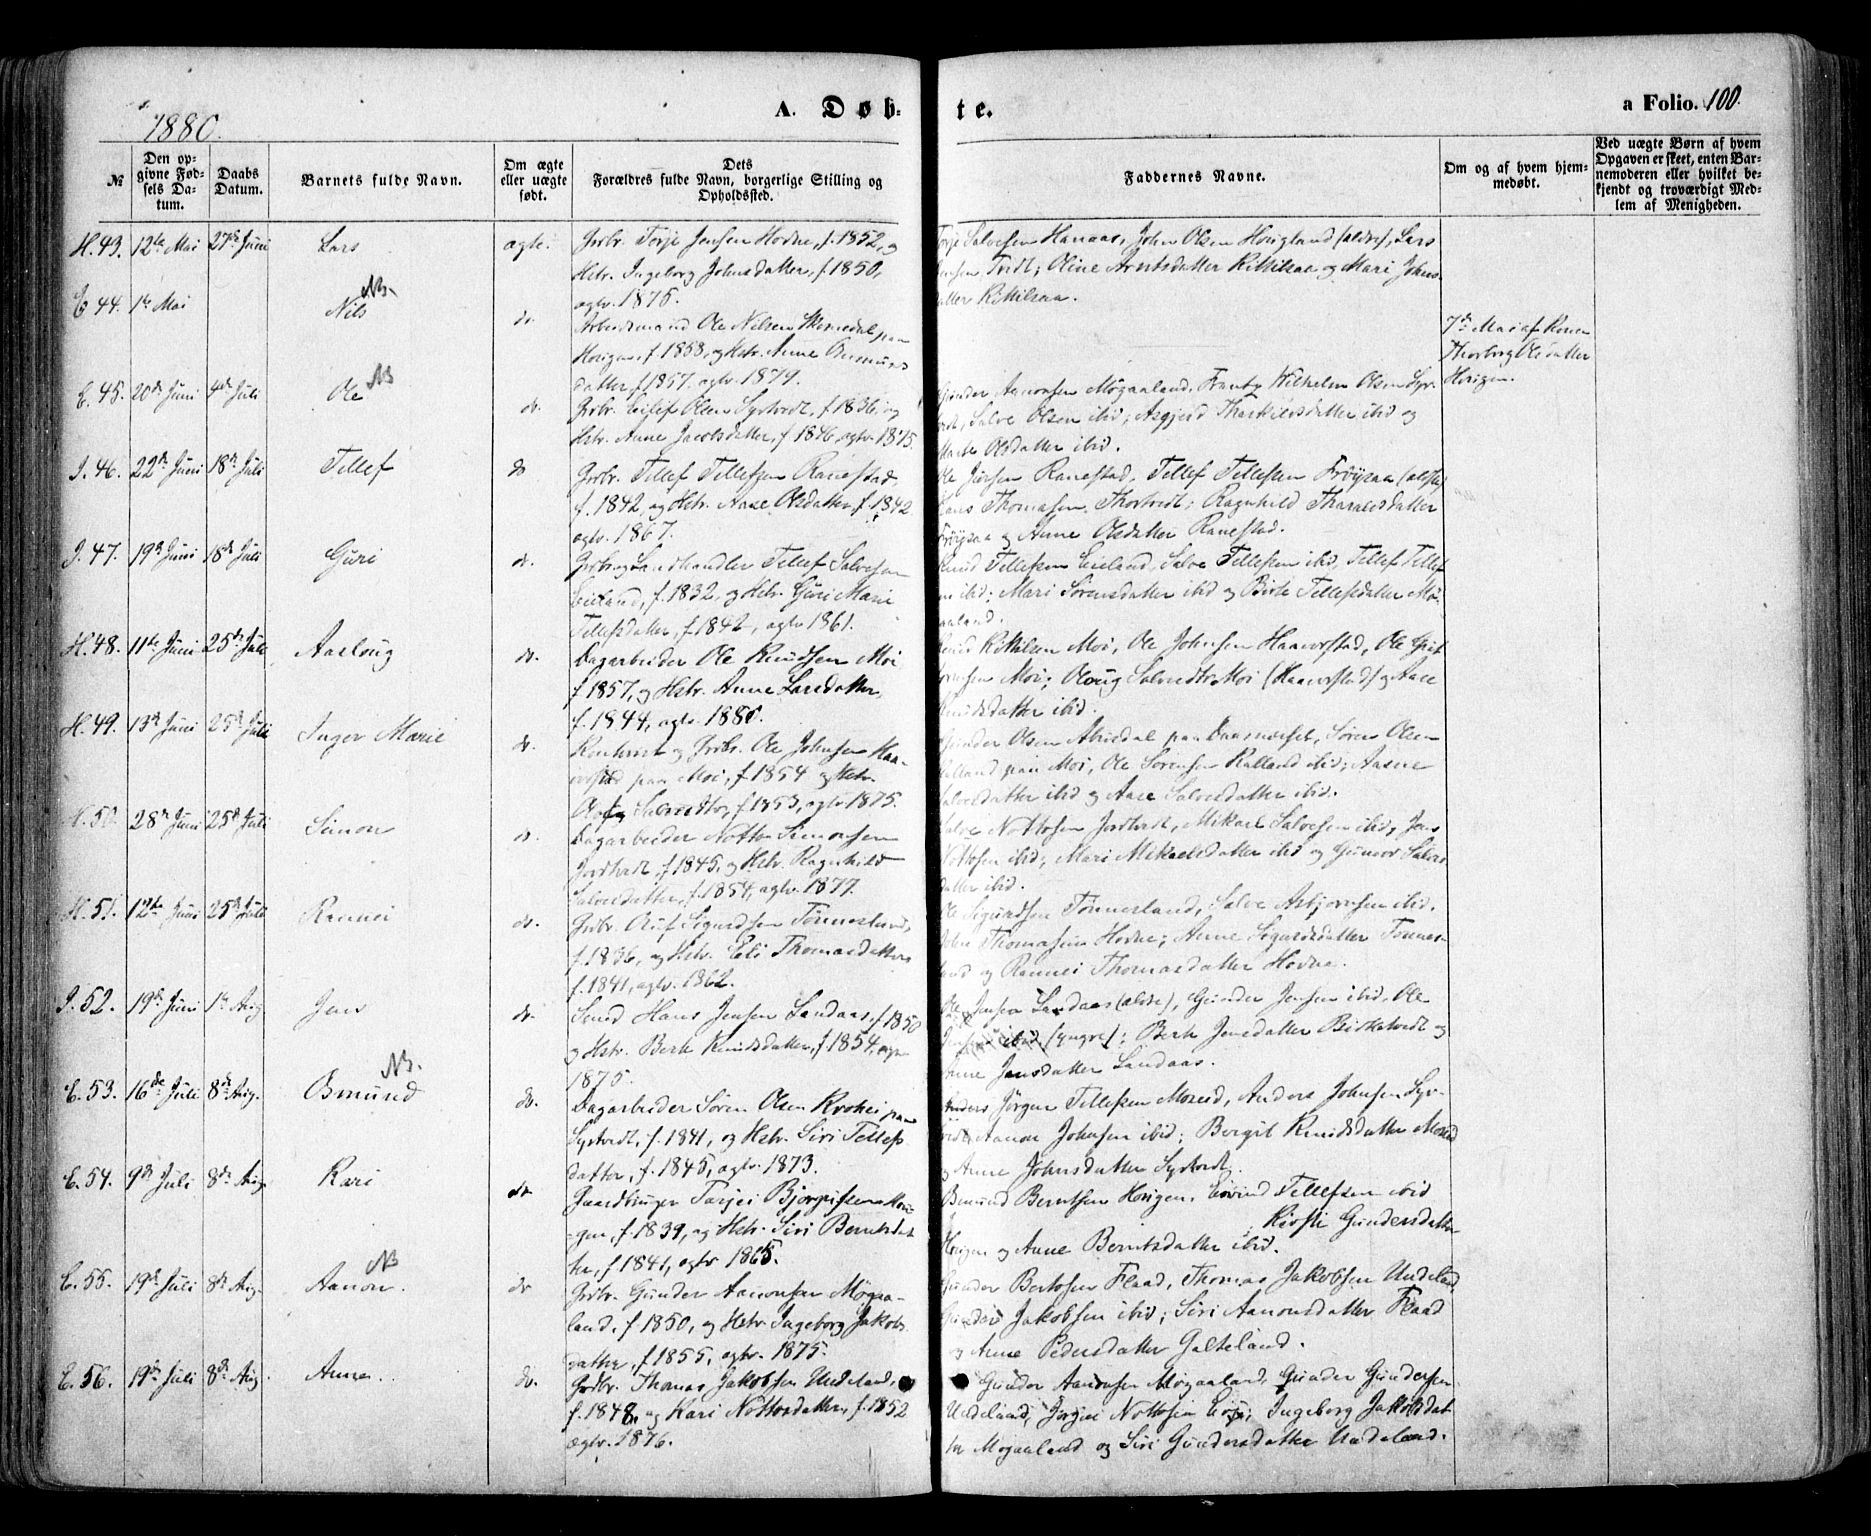 1880.
A. Døb-
te.
a Folio. 100.
№
Den op-
givne Fød-
sels Da-
tum.
Daabs
Datum.
Barnets fulde Navn.
Om ægte
eller uægte
født.
Dets
Forældres fulde Navn, borgerlige Stilling og
Opholdssted.
Faddernes Navne.
Om og af hvem hjem-
medøbt.
Ved uægte Børn af hvem
Opgaven er skeet, enten Bar-
nemoderen eller hvilket be-
kjendt og troværdigt Med-
lem af Menigheden.
H. 43. 12te Mai 27de Juni Lars ægte.
Grbr. Torje Jensen Hodne, f. 1852, og
Hstr. Ingeborg Johnsdatter, f. 1850,
ægtv. 1875.
Torje Salvesen Hanaas, John Olsen Hougland (ældre), Lars
Jensen Tvedt; Oline Arntsdatter Kittilsaa og Mari Johns-
datter Kittilsaa.
E 44. 1te Mai Nils NB. do
Arbeidsmand Ole Nilsen paa
Horigen, f. 1858, og Hstr. Anne Osmunds
datter f 1857. ægtv. 1879.
7de Mai af Konen
Thorborg Olsdatter
Horigen.
E. 45. 20de Juni 4de Juli Ole NB do.
Grbr. Eilef Olsen Syrtvedt, f. 1836, og
Hstr. Anne Jacobsdatter, f 1846, ægtv. 1875.
Gunder Aanonsen Møgaaland, Wilhelm Olsen Syr-
tvedt, Salve Olsen ibid; Asgjerd Tharkildsdatter ibid og
Marte Olsdatter ibid.
I. 46. 22de Juni 18de Juli Tellef do
Grbr. Tellef Tellefsen Ranestad
f. 1842, og Hstr. Aase Olsdatter, f. 1842
ægtv. 1867.
Ole Jensen Ranestad, Tellef Tellefsen Frøysaa (ældste)
Hans Thomasen Thortvedt; Ragnhild Tharaldsdatter
Frøysaa og Anne Olsdatter Ranestad.
I. 47. 19de Juni 18de Juli Guri do.
Grbr. og Landhandler Tellef Salvesen
Eieland, f. 1832, og Hstr. Guri Marie
Tellefsdatter, f. 1842, ægtv 1861.
Knud Tellefsen Eieland, Salve Tellefsen ibid, Tellef Tellef
sen ibid; Mari Sørensdatter ibid og Birte Tellefsdatter Mø-
gaaland.
H. 48. 11te Juni 25de Juli Aaslaug do.
Dagarbeider Ole Knudsen Moi
f 1857, og Hstr. Anne Larsdatter,
f. 1844, ægtv. 1880.
Knud Kittilsen Moi, Ole Johnsen Haaverstad, Ole
Moi; Olaug Salvesdtr Moi (Haaverstad) og Aase
Knudsdatter ibid.
H. 49. 13de Juni 25de Juli Inger Marie do.
og Grbr. Ole Johnsen Haa-
verstad paa Moi, f. 1854 og Hstr.
Olaug Salvesdtr, f. 1853, ægtv. 1875.
Gunder Olsen Abusdal paa Daasnæset, Søren Olsen
Kalland paa Moi, Ole Sørensen Kalland ibid; Aasne
Salvesdatter ibid og Aase Salvesdatter ibid.
H. 50. 28de Juni 25de Juli Simon do.
Dagarbeider Notto Simonsen
Jortveit, f. 1845, og Hstr. Ragnhild
Salvesdatter, f. 1854, ægtv. 1877.
Salve Nottosen Jortveit, Mikael Salvesen ibid, Jens
Nottosen ibid; Mari Mikaelsdatter ibid og Gunvor Salves
datter ibid.
H. 51. 12te Juni 25de Juli Rannei do.
Grbr. Oluf Sigurdsen Tønnesland,
f. 1836, og Hstr. Eli Thomasdatter
f. 1841, ægtv. 1862.
Ole Sigurdsen Tønnesland, Salve Asbjørnsen ibid.
John Thomasen Hodne; Anne Sigurdsdatter Tønnes-
land og Rannei Thomasdatter Hodne.
I. 52. 19de Juni 1te Aug Jens do.
Smed Hans Jensen Landaas, f. 1850
og Hstr. Berte Knudsdatter, f. 1854, ægtv
1875.
Ole Jensen Landaas (ældre), Gunder Jensen ibid, Ole
Jensen ibid (yngre); Berte Jensdatter Birketvedt og
Anne Jensdatter Landaas.
E. 53. 16de Juli 8de Aug. Osmund NB. do.
Dagarbeider Søren Olsen Krokei paa
Syrtvedt, f. 1841, og Hstr. Siri Tellefs
datter, f. 1845, ægtv. 1873.
Jørgen Tellefsen Moseid, Anders Johnsen Syr-
tvedt Aanon Johnsen ibid; Bergit Knudsdatter Moseid
og Anne Johnsdatter Syrtvedt.
E. 54. 9de Juli 8de Aug Kari do
Gaardbruger Tarjei Bjorgufsen Hori-
gen, f. 1839, og Hstr. Siri Berntsdat
ter, f. 1841, ægtv 1865.
Berntsen Horigen, Eivind Tellefsen ibid
; Kirsti Gundersdatter
Horigen og Anne Berntsdatter ibid.
E. 55. 19de Juli 8de Aug. Aanon. NB do
Grbr. Gunder Aanonsen Møgaa-
land, f 1850, og Hstr. Ingeborg Jakobs
datter, f. 1855, ægtv. 1875.
Gunder Bertosen Flaad, Thomas Jakobsen Uudeland,
Gunder Jakobsen ibid; Siri Aanonsdatter Flaad
og Anne Pedersdatter Galteland.
E. 56. 19de Juli 8de Aug. Anne. do.
Grdbr. Thomas Jakobsen Uudeland,
f. 1848, og Kari Nottosdatter, f. 1852
ægtv. 1876.
Gunder Aanonsen Møgaaland, Gunder Gundersen
Uudeland, Jørgen Nottosen; Ingeborg Jakobsdat
ter Møgaaland og Siri Gundersdatter Uudeland.